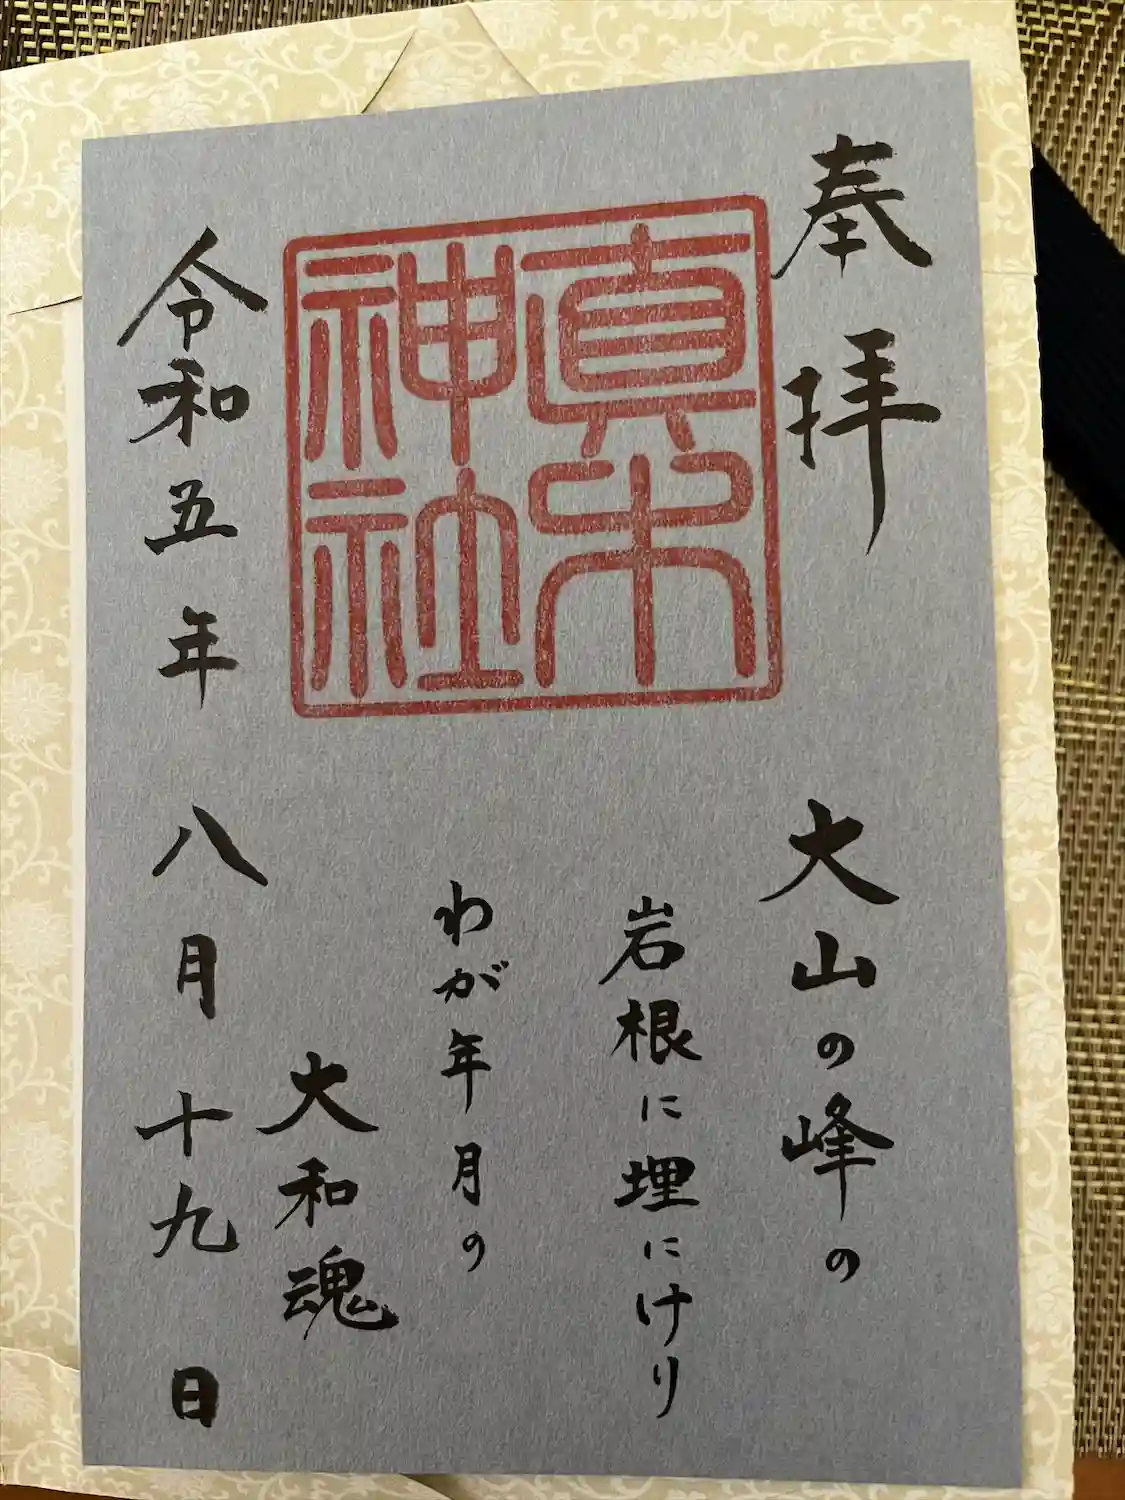 奉拝
眞木
神社
大山の峰の
岩根に埋にけり
わが年月の
大和魂
令和五年八月十九日